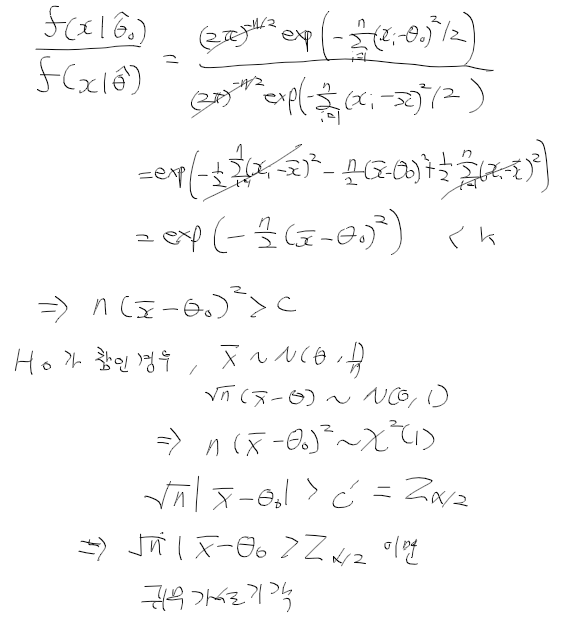 f(x|θ̂₀) / f(x|θ̂) = (2π)^{-n/2} exp(-∑_{i=1}^{n}(x_i-θ₀)²/2) / (2π)^{-n/2} exp(-∑_{i=1}^{n}(x_i-x̄)²/2)
= exp(-½∑_{i=1}^{n}(x_i-x̄)² - n/2(x̄-θ₀)² + ½∑_{i=1}^{n}(x_i-x̄)²)
= exp(-n/2(x̄-θ₀)²) < k
⇒ n(x̄-θ₀)² > c
H₀가 참인경우, x̄ ~ N(θ, 1/n)
√n(x̄-θ) ~ N(0,1)
⇒ n(x̄-θ₀)² ~ χ²(1)
√n|x̄-θ₀| > c' = Z_{α/2}
⇒ √n|x̄-θ₀ > Z_{α/2} 이면
귀무가설기각